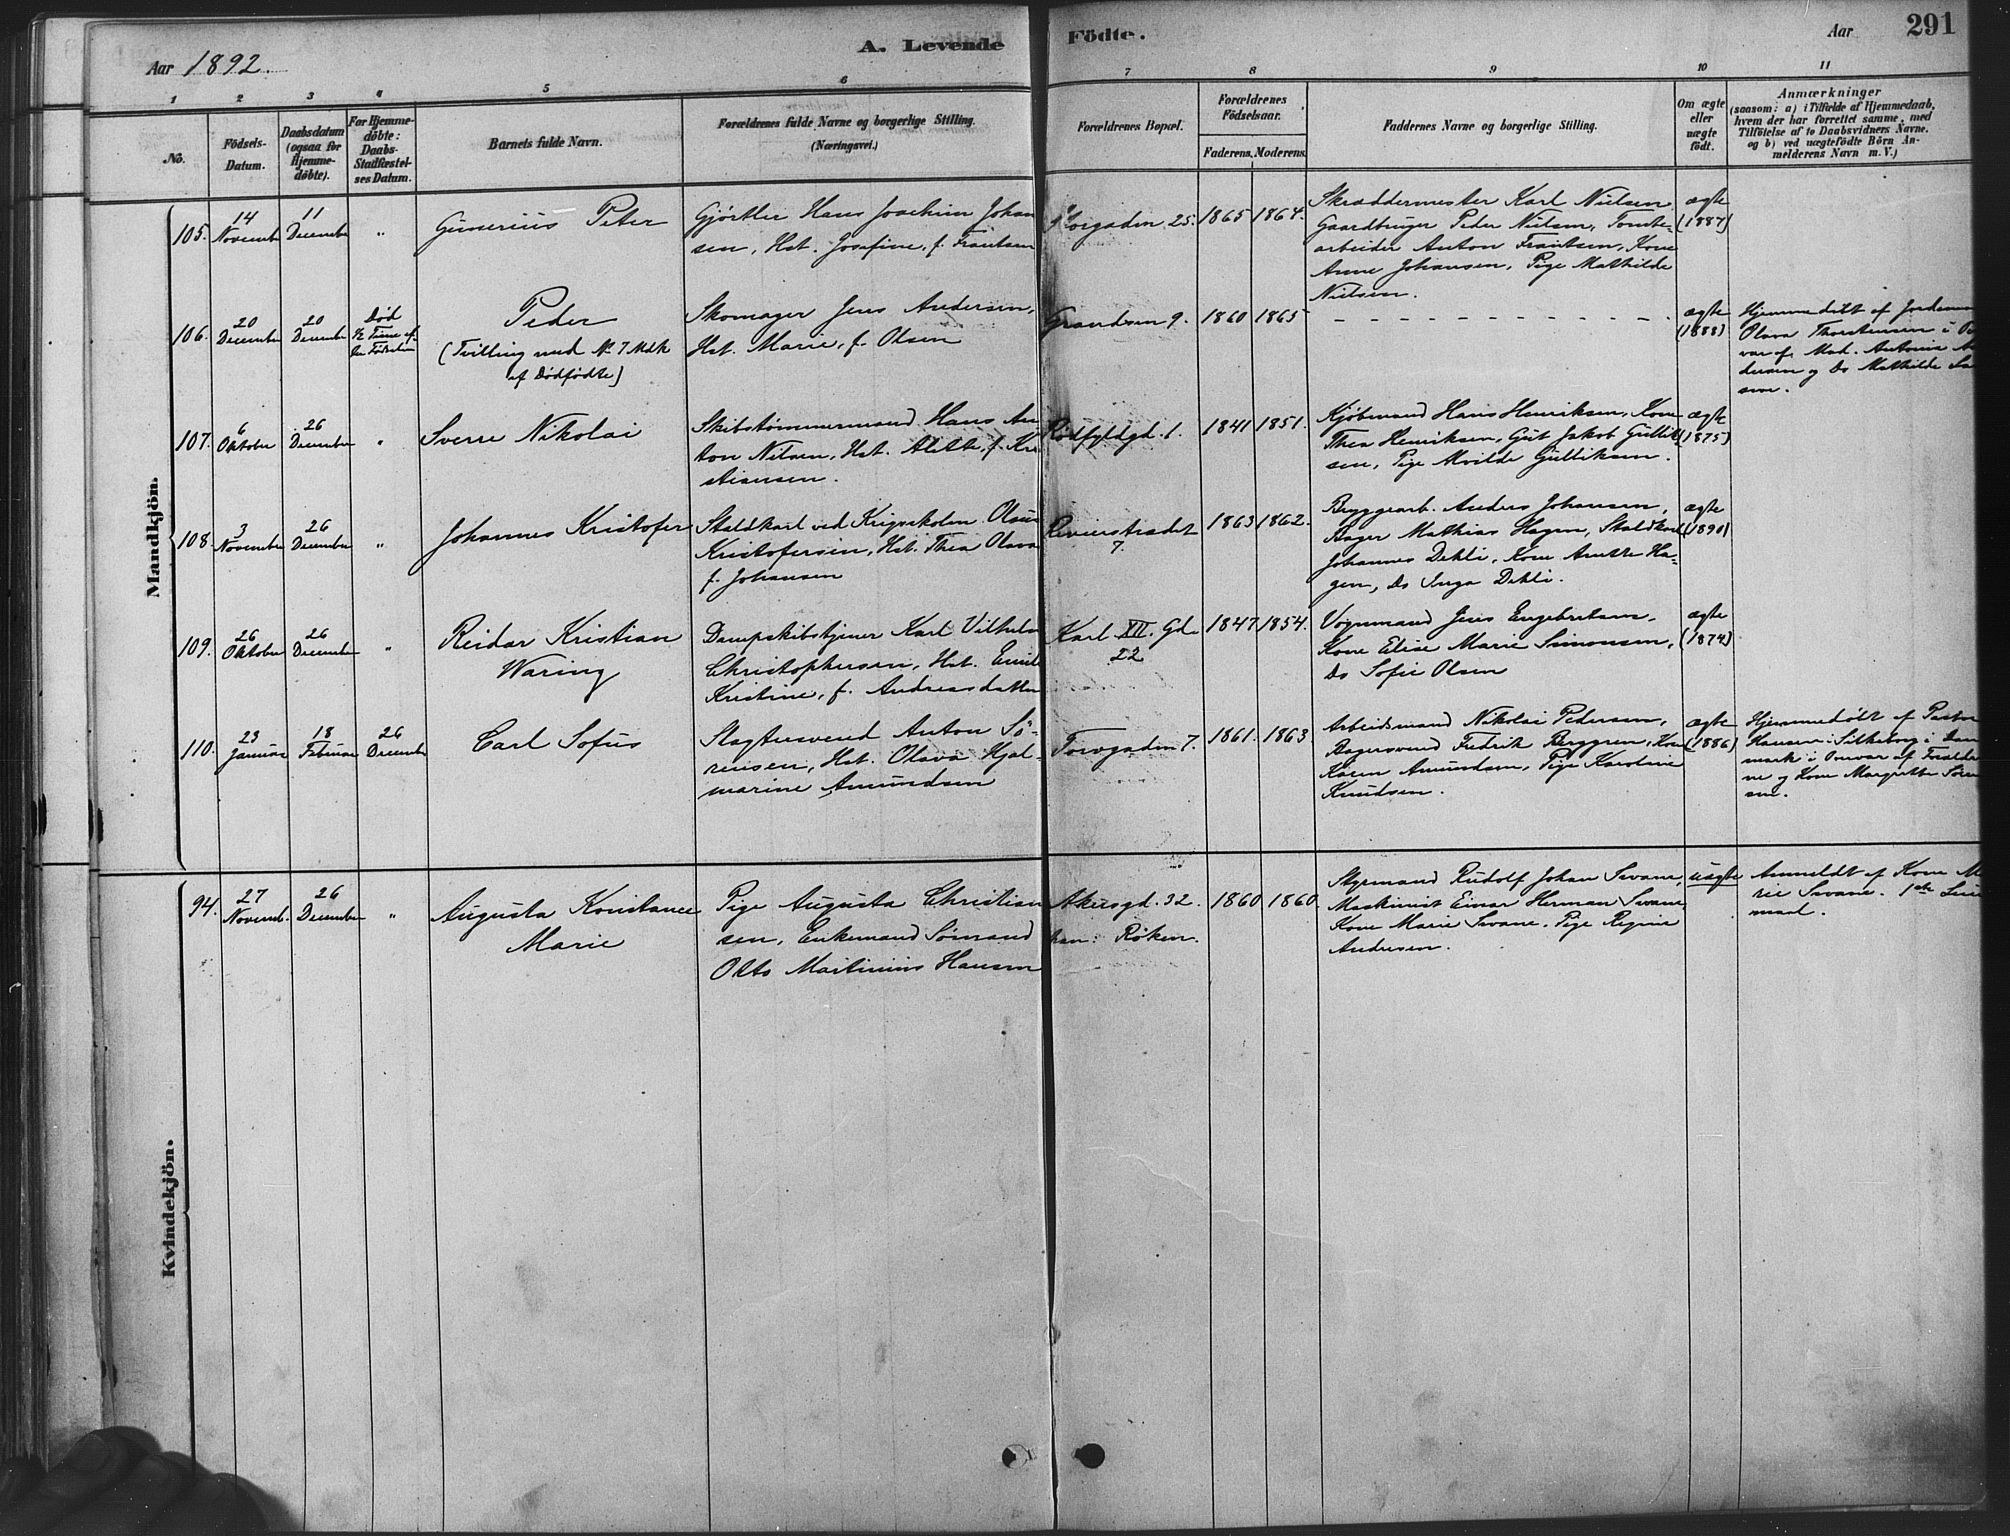 A. Levende Fødte.
Aar 1892.
Aar 291
1 2 3 4 5 6 7 8 9 10 11
No.
Fødsels-
Datum.
Daabsdatum
(ogsaa for
Hjemme-
døbte).
For Hjemme-
døbte:
Daabs-
Stadfæstel-
ses Datum.
Barnets fulde Navn.
Forældrenes fulde Navne og borgerlige Stilling.
(Næringsvei.)
Forældrenes Bopæl.
Forældrenes
Fødselsaar.
Faderens. Moderens.
Faddernes Navne og borgerlige Stilling.
Om ægte
eller
uægte
født.
Anmærkninger
(saasom: a) i Tilfælde af Hjemmedaab,
hvem der har forrettet samme, med
Tilføielse af to Daabsvidners Navne.
og b) ved uægtefødte Børn An-
melderens Navn m. V.)
Mandkjön.
105.
14
Novembr
11
Decembr
"
Gunerius Peter
Gjörtler Hans Joachim Johan
sen, Hst. Josefine, f. Frantsen
25.
1865 1864.
Skræddermester Karl Nielsen
Gaardbruger Peder Nielsen, Tomte-
arbeider Anton Frantsen, Kone
Anne Johansen, Pige Mathilde
Nielsen.
ægte
(1887)
106.
20
December
20
December
Död
½ Time ef-
Födselen
Peder
(Tvilling med No 7 Mdk
af Dødfødte)
Skomager Jens Andersen,
Hst. Marie, f. Olsen
Grandsen 9.
1860 1865
ægte
(1888)
Hjemmedöbt af Jordemo
Olava Thorstensen i O
var af Mad. Antonia A
dersen og Do Mathilde La
sen.
107.
6
Oktober
26
December
"
Sverre Nikolai
Skibstømmermand Hans An
ton Nilsen, Hst. Alette, f. Kri
stiansen.
Rødfyldgd. 1.
1841 1851.
Kjöbmand Hans Henriksen, Kone
Thea Henriksen, Gut Jakob Gullik
sen, Pige Mvilde Gulliksen.
ægte
(1875)
108.
3
November
26
December
"
Johannes Kristofer
Staldkarl ved Krigsskolen Olaus
Kristofersen, Hst. Thea Olava
f. Johansen
Revierstrædet
7.
1863 1862.
Bryggearb. Anders Johansen,
Bager Mathias Hagen, Staldkarl
Johannes Dehli, Kone Anette Ha-
gen, Do Inga Dehli.
ægte
(1890)
109.
26
Oktober
26
December
"
Reidar Kristian
Waring
Dampskibstjener Karl Vilhelm
Christophersen, Hst. Emilie
Kristine, f. Andreasdatter
Karl XII. Gd.
22
1847 1854.
Vognmand Jens Engebretsen,
Kone Elise Marie Simonsen,
Do Sofie Olsen
ægte
(1874)
110.
23
Januar
18
Februar
26
December
Carl Sofus
Slagtersvend Anton Sö-
rensen, Hst. Olava Hjal-
marine Amundsen
Torvgaden 7.
1861. 1863
Arbeidsmand Nikolai Pedersen,
Bagersvend Fredrik Berggren, Kone
Karen Amundsen, Pige Karoline
Knudsen.
ægte
(1886)
Hjemmedöbt af Pastor
Hansen i Silkeborg i Dan
mark i Overvær af Forældre
ne og Kone Margrethe Sören
sen.
Kvindekjön.
94.
27
Novemb.
26
December
"
Augusta Konstance
Marie
Pige Augusta Christian
sen, Enkemand Sømand
Otto Martinius Hansen
Akersgd. 32.
han: Røken.
1860 1860
Styrmand Rudolf Johan Svane,
Maskinist Einar Herman Svane,
Kone Marie Svane, Pige Regine
Andersen.
uægte
Anmeldt af Kone Ma
rie Svane. 1ste Leie
maal.